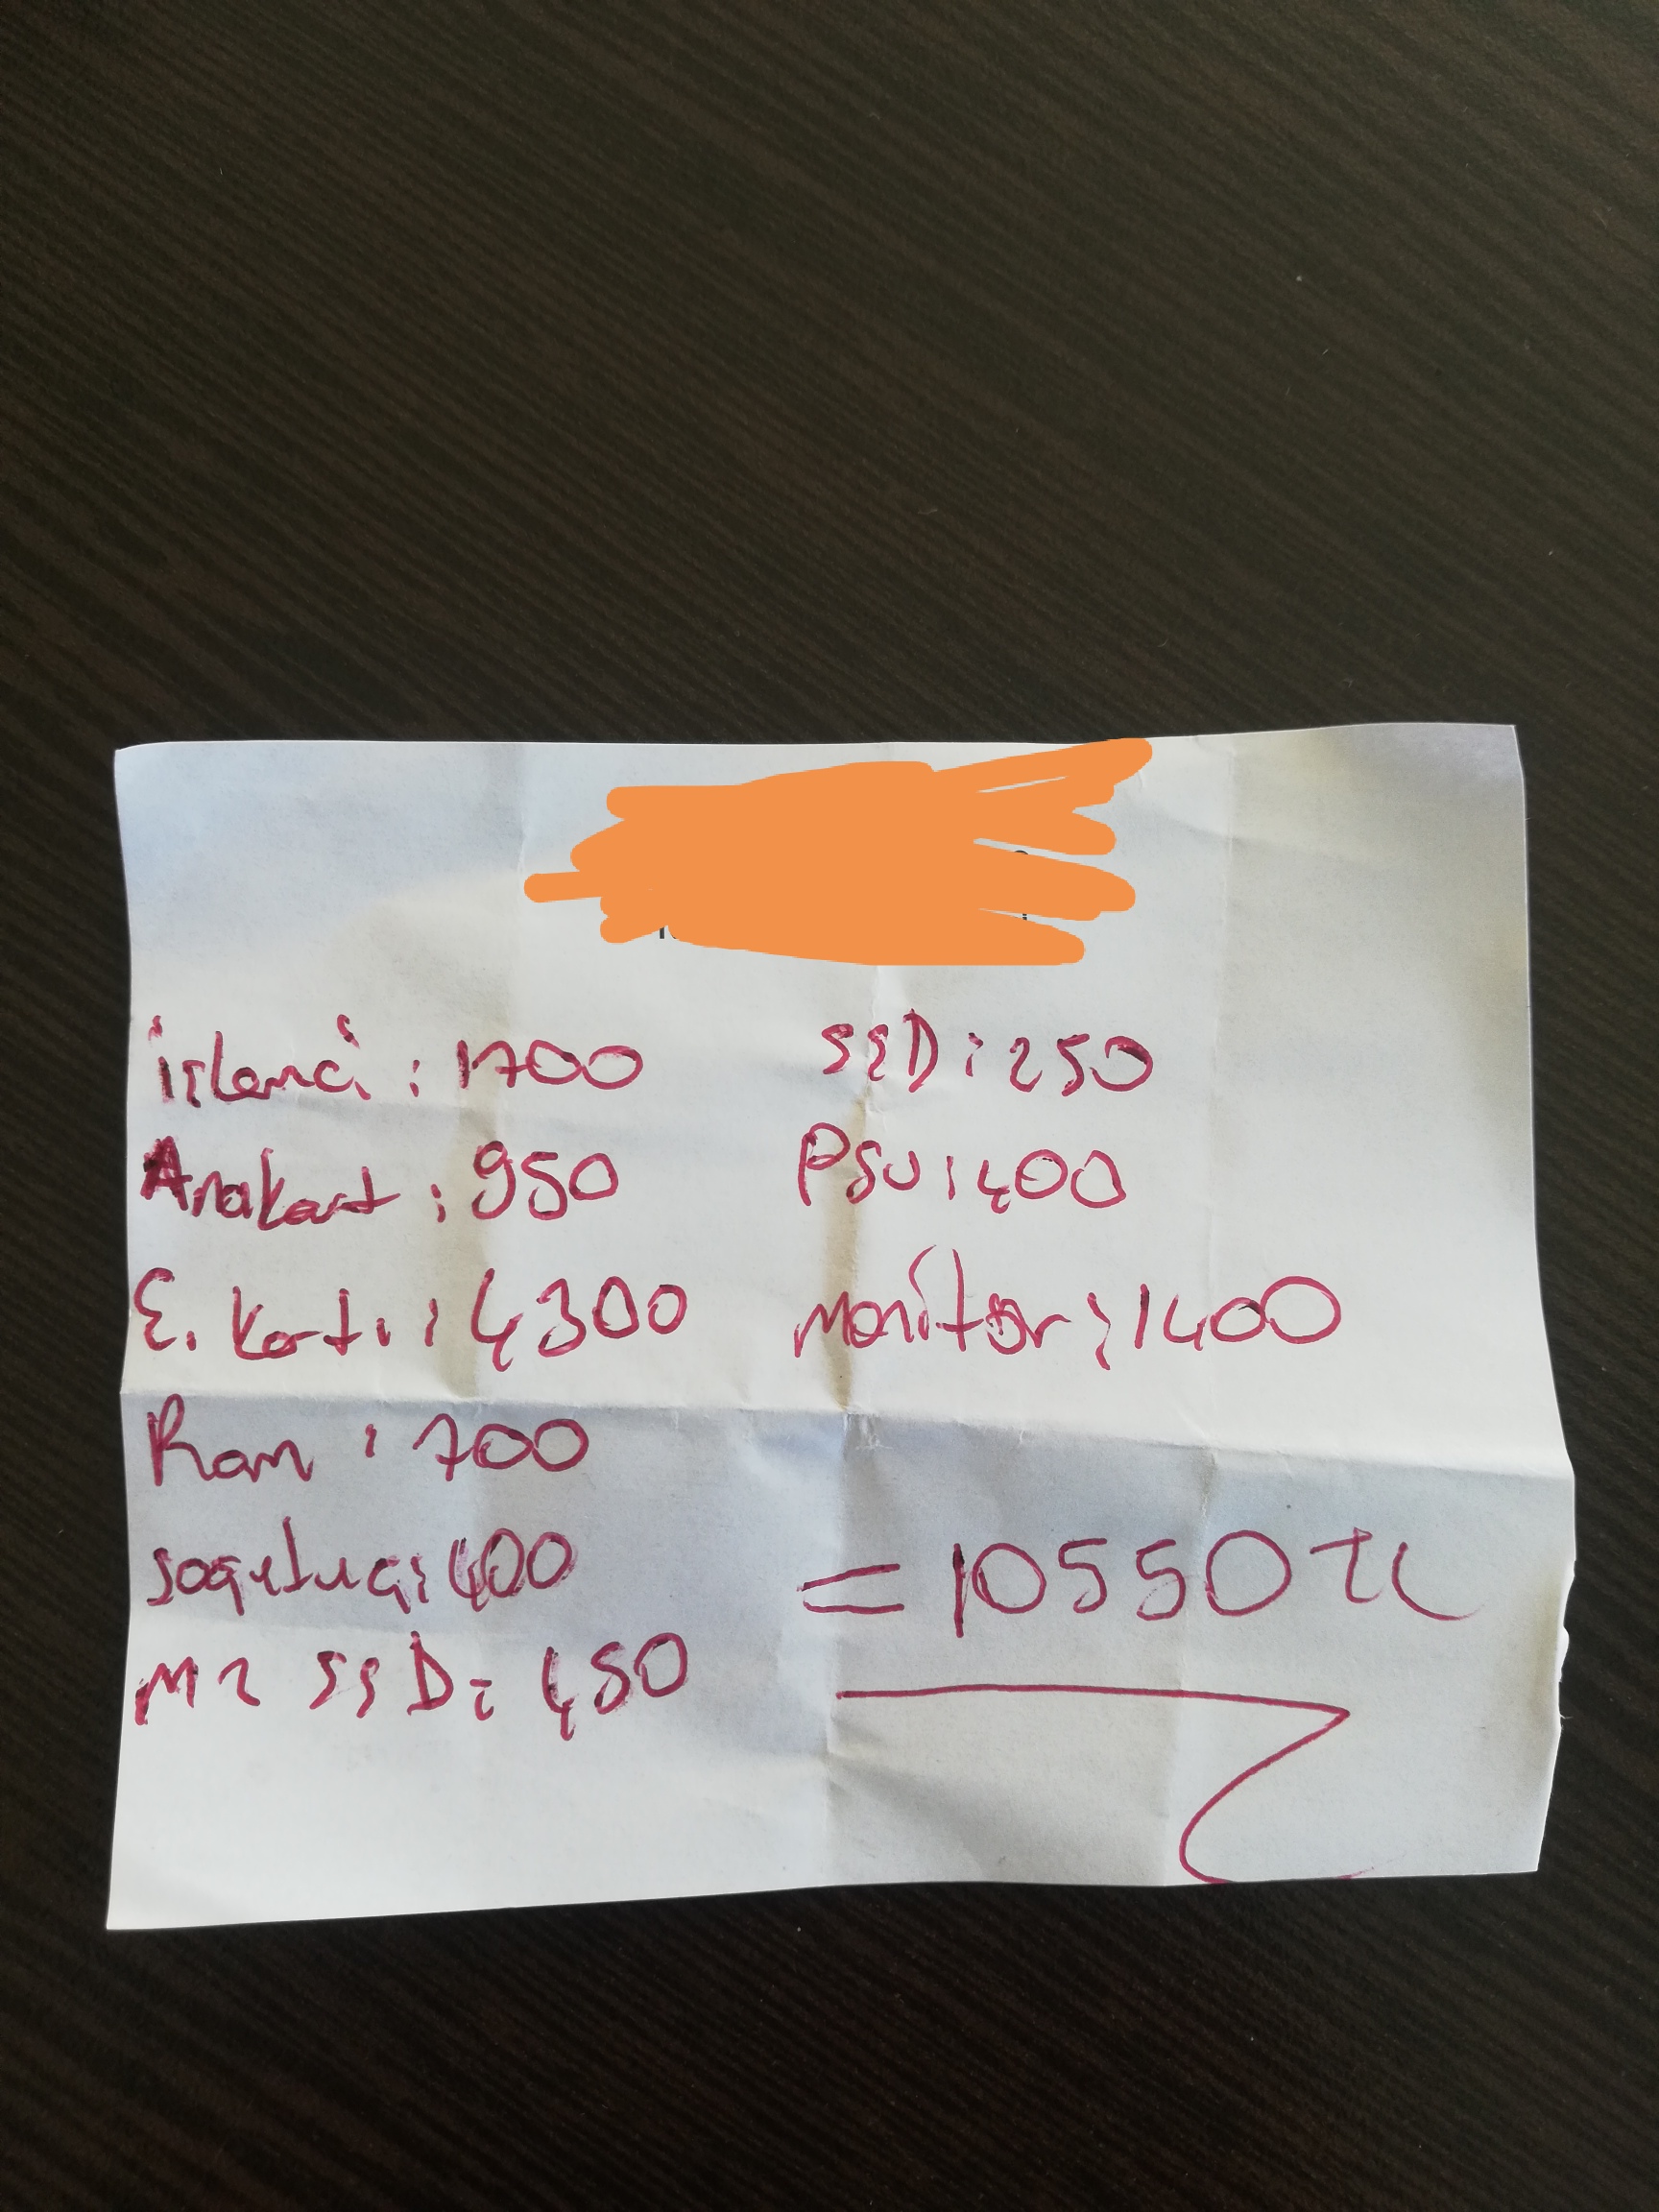 işlemci : 1700
Anakart : 950
E. Kartı : 4300
Ram : 700
soğutucu : 400
M2 SSD : 450
SSD : 250
PSU : 400
monitör : 1400
= 10550 TL